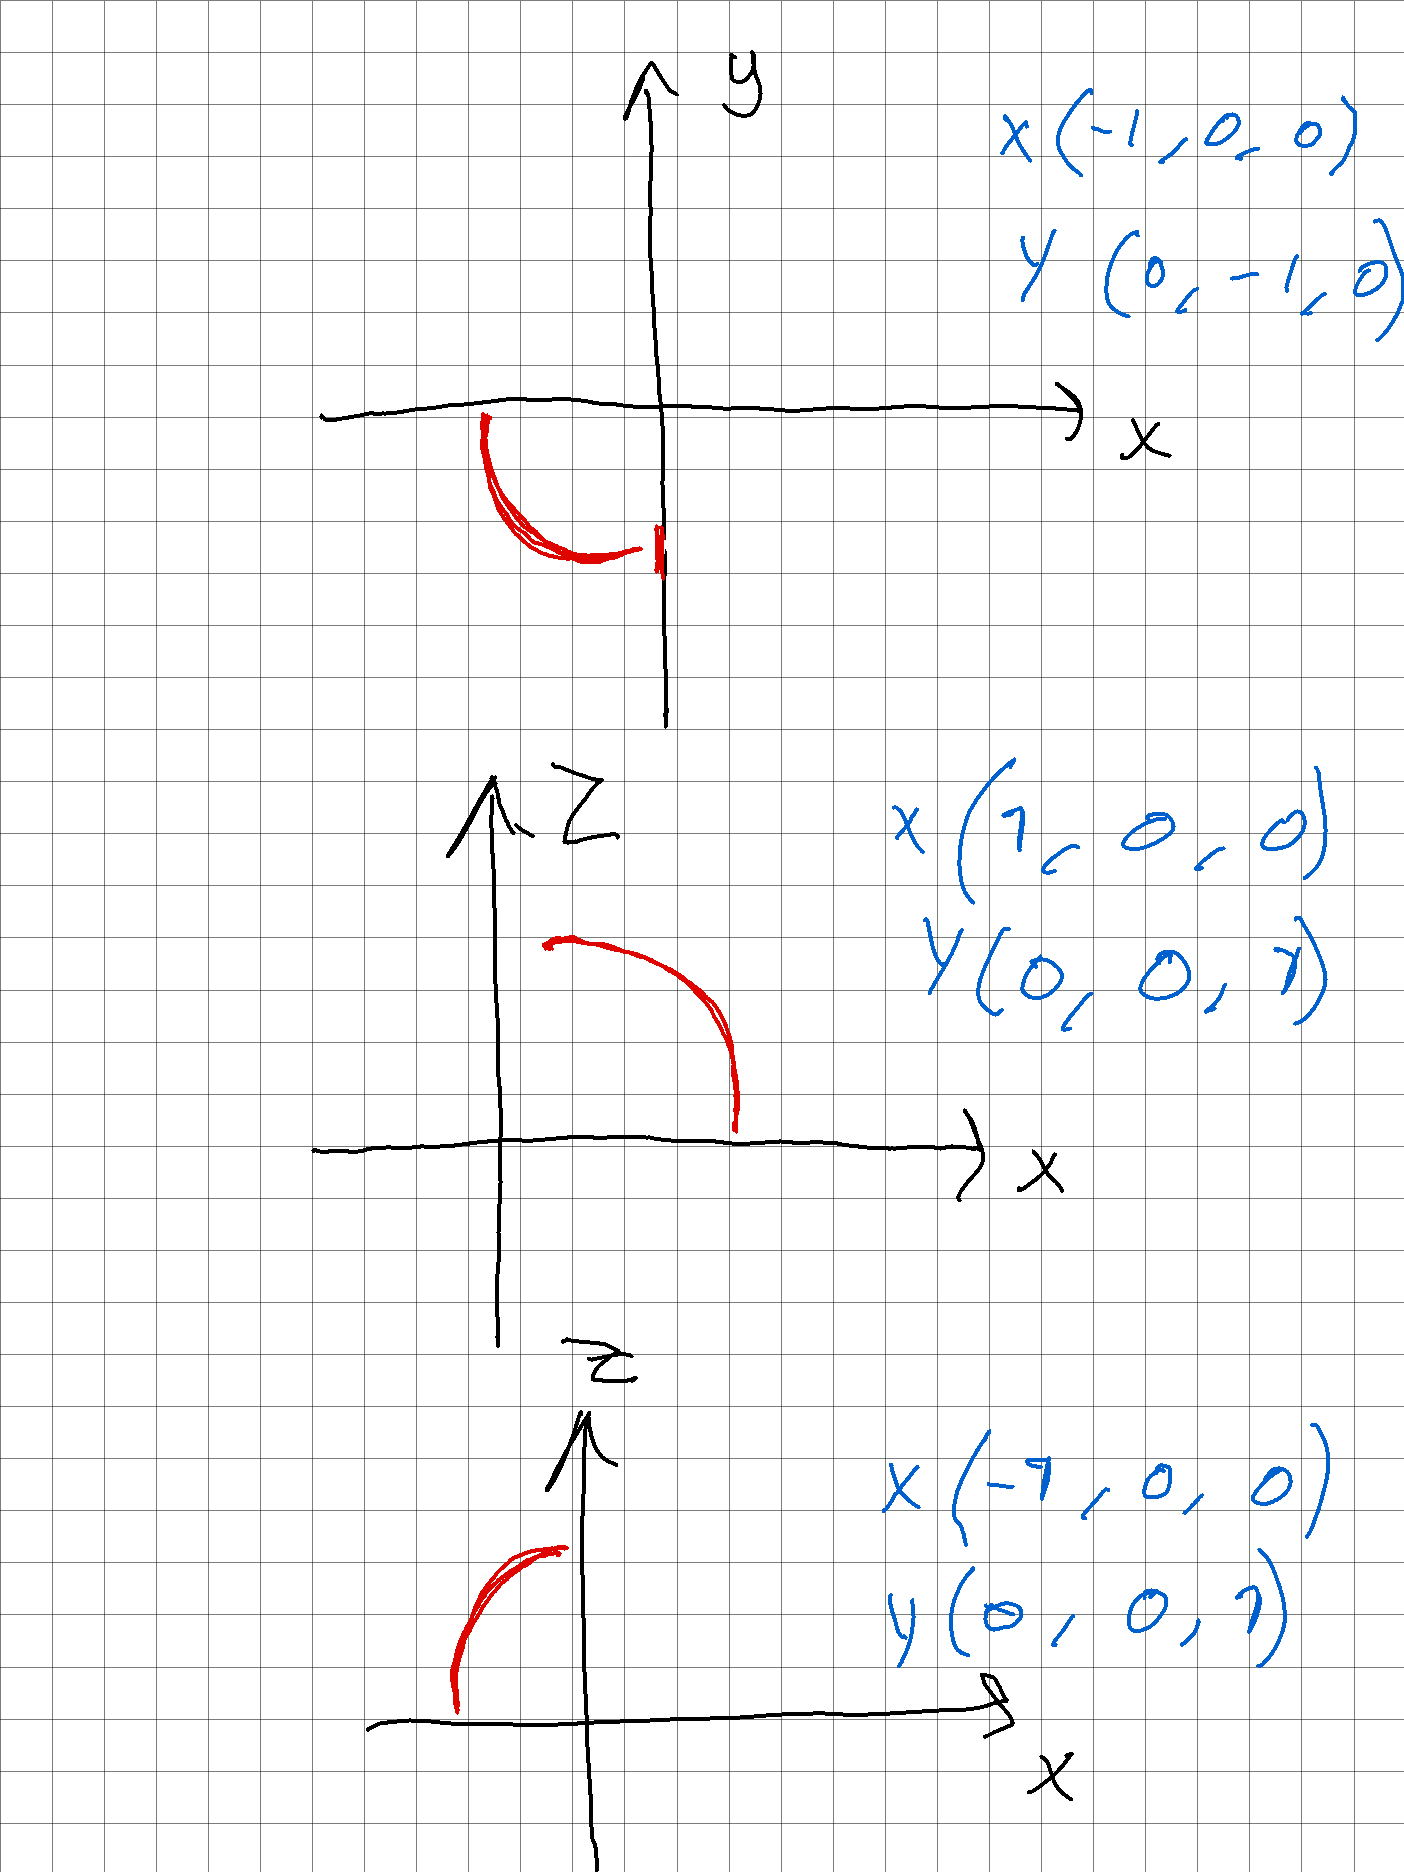 y
x(-1, 0, 0)
y (0, -1, 0)
x
z
x(1, 0, 0)
y(0, 0, 1)
x
z
x(-1, 0, 0)
y(0, 0, 1)
x